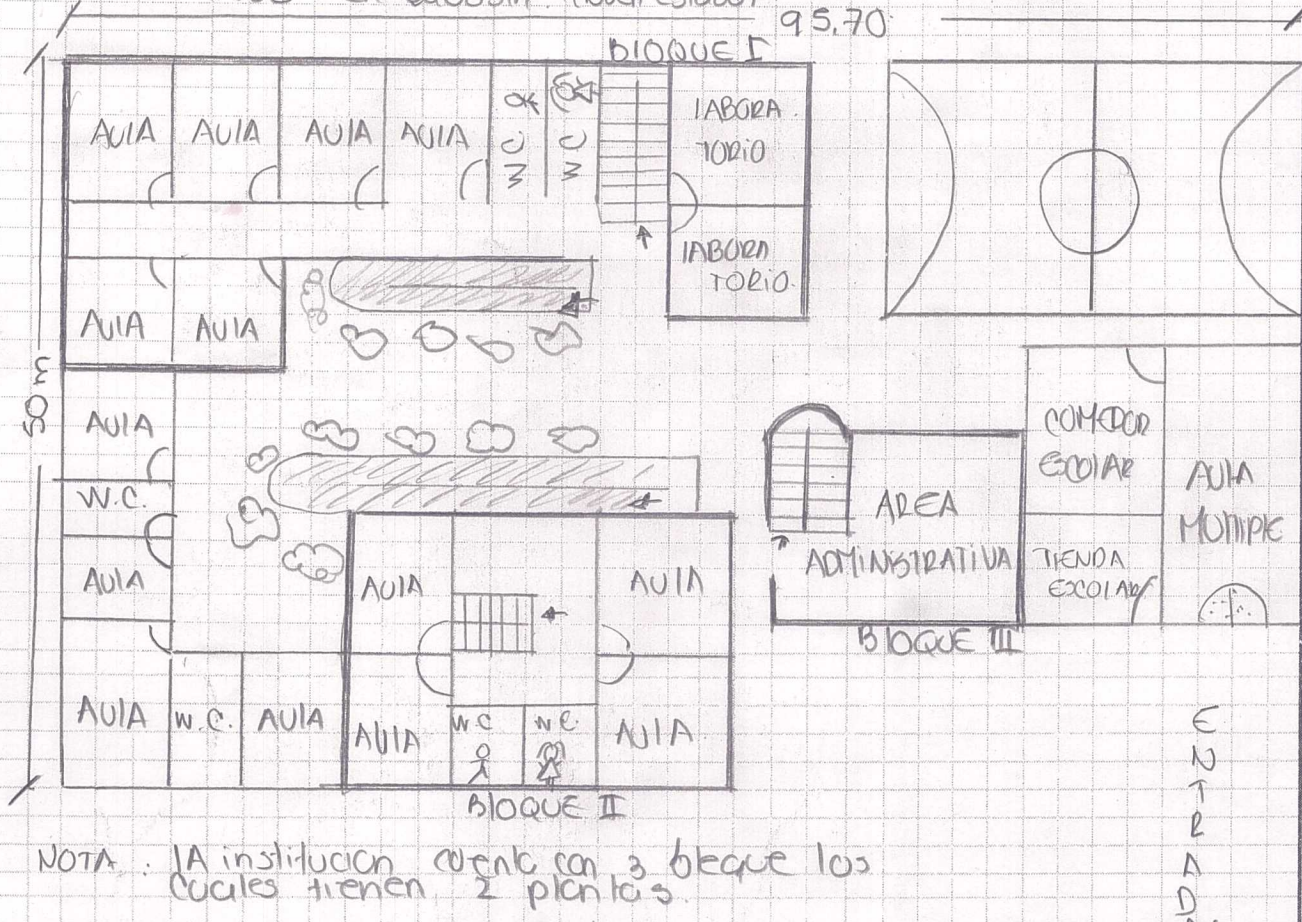 95.70
BLOQUE I
AULA
AULA
AULA
AULA
W C
W C
LABORA
TORIO
LABORA
TORIO.
AULA
AULA
50 m
AULA
W.C.
AULA
AULA
W.C.
AULA
AULA
AULA
AULA
W.C
W.C.
AULA
BLOQUE II
AREA
ADMINISTRATIVA
BLOQUE III
COMEDOR
ECOLAR
TIENDA
EXCOLAR
AULA
MULTIPLE
E
N
T
R
A
D
NOTA : LA institucion cuenta con 3 bloque los
cuales tienen 2 plantas.